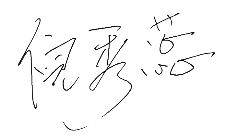 倪秀蕊